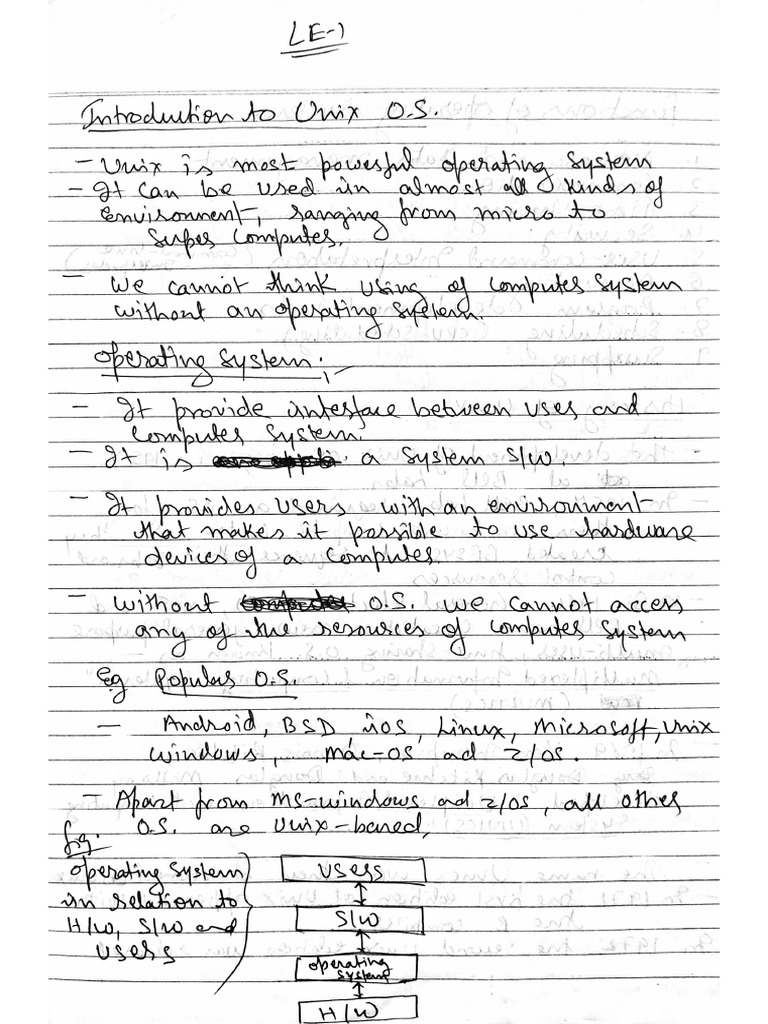 LE-1
Introduction to Unix O.S.
- Unix is most powerful operating system
- It can be used in almost all kinds of
environment, ranging from micro to
super computer.
- We cannot think using of computer system
without an operating system.
operating system:-
- It provide interface between user and
computer system.
- It is a system S/W.
- It provides users with an environment
that makes it possible to use hardware
devices of a computer.
- without O.S. we cannot access
any of the resources of computer system
Eg Popular O.S.
- Android, BSD iOS, Linux, Microsoft, Unix
windows, Mac-OS ad z/OS.
- Apart from MS-windows ad z/OS, all other
O.S. are Unix-based,
fig:
operating system
in relation to
H/W, S/W and
users
users
S/W
operating
system
H/W